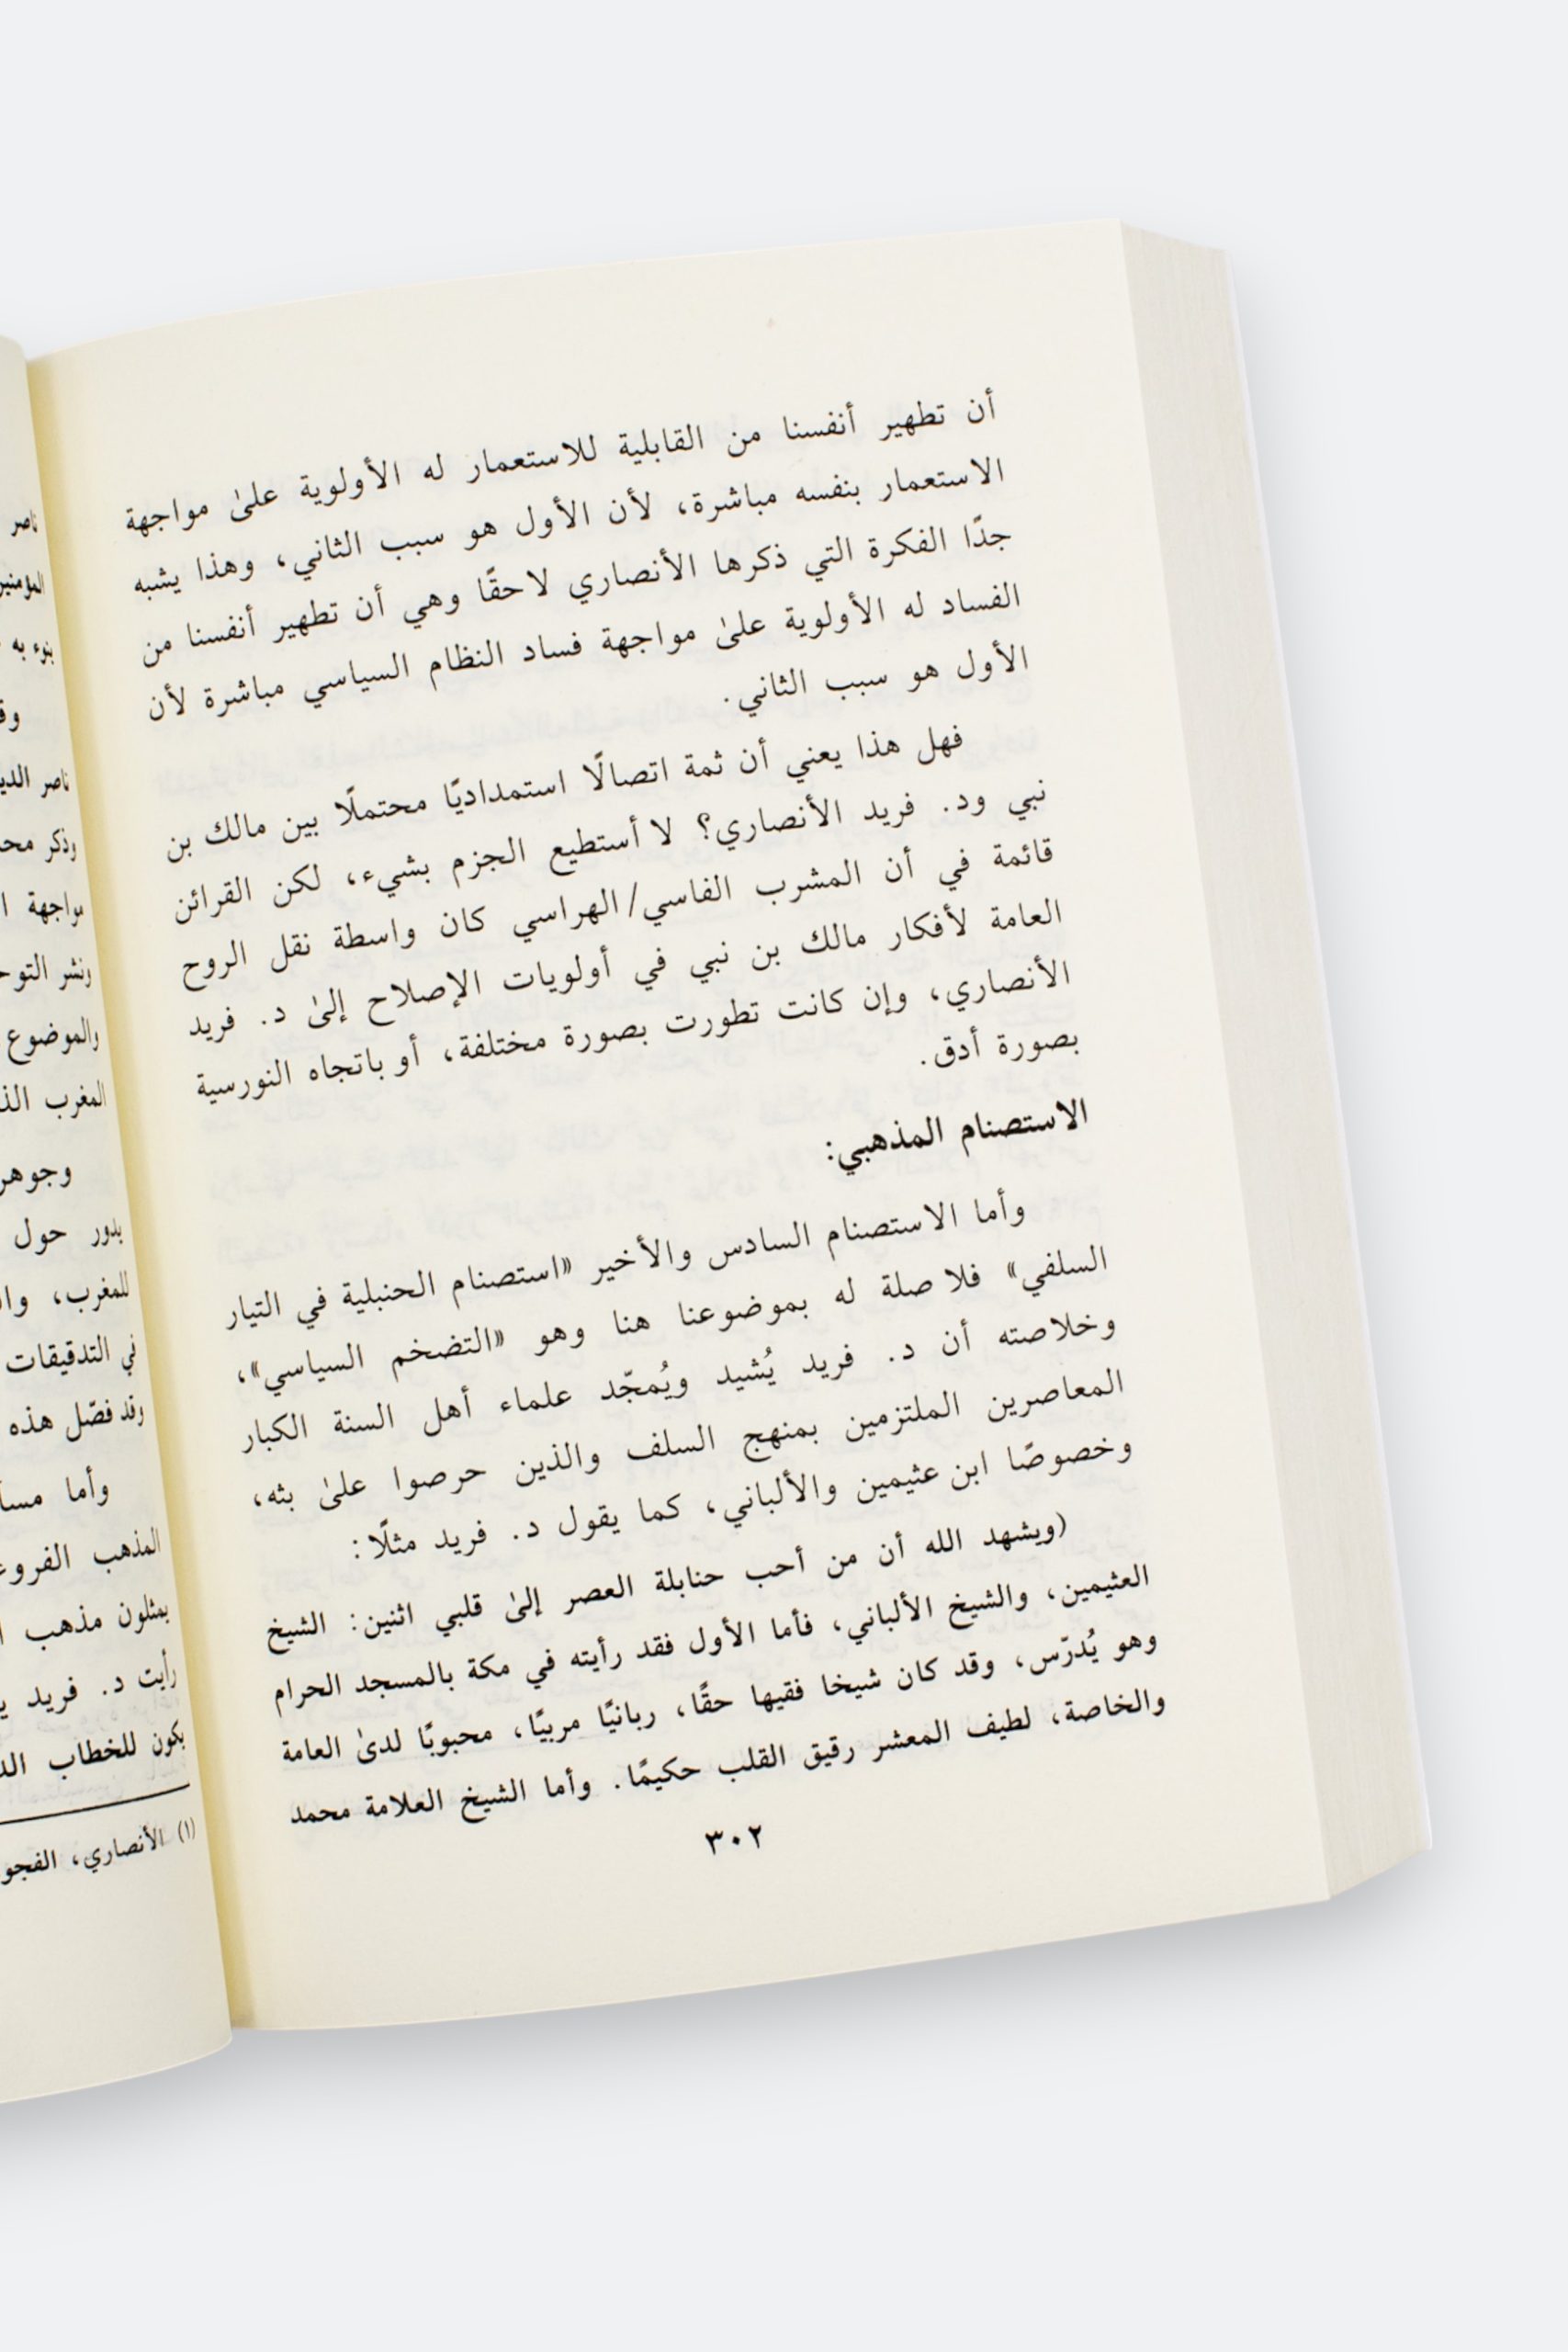 أن تطهير أنفسنا من القابلية للاستعمار له الأولوية علىٰ مواجهة
الاستعمار بنفسه مباشرة، لأن الأول هو سبب الثاني، وهذا يشبه
جدًا الفكرة التي ذكرها الأنصاري لاحقًا وهي أن تطهير أنفسنا من
الفساد له الأولوية علىٰ مواجهة فساد النظام السياسي مباشرة لأن
الأول هو سبب الثاني.
فهل هذا يعني أن ثمة اتصالًا استمداديًا محتملًا بين مالك بن
نبي ود. فريد الأنصاري؟ لا أستطيع الجزم بشيء، لكن القرائن
قائمة في أن المشرب الفاسي/الهراسي كان واسطة نقل الروح
العامة لأفكار مالك بن نبي في أولويات الإصلاح إلىٰ د. فريد
الأنصاري، وإن كانت تطورت بصورة مختلفة، أو باتجاه النورسية
بصورة أدق.
الاستصنام المذهبي:
وأما الاستصنام السادس والأخير «استصنام الحنبلية في التيار
السلفي» فلا صلة له بموضوعنا هنا وهو «التضخم السياسي»،
وخلاصته أن د. فريد يُشيد ويُمجّد علماء أهل السنة الكبار
المعاصرين الملتزمين بمنهج السلف والذين حرصوا علىٰ بثه،
وخصوصًا ابن عثيمين والألباني، كما يقول د. فريد مثلًا:
(ويشهد الله أن من أحب حنابلة العصر إلىٰ قلبي اثنين: الشيخ
العثيمين، والشيخ الألباني، فأما الأول فقد رأيته في مكة بالمسجد الحرام
وهو يُدرّس، وقد كان شيخا فقيها حقًا، ربانيًا مربيًا، محبوبًا لدىٰ العامة
والخاصة، لطيف المعشر رقيق القلب حكيمًا. وأما الشيخ العلامة محمد
٣٠٢
ناصر
بنوء به
ناصر
وذكر
مواجهة
ونشر
والموضوع
المغرب
يدور حول
للمغرب،
في التدقيقات
وقد فصّل هذه
وأما
المذهب
يمثلون مذهب
رأيت د. فريد
يكون للخطاب
(١) الأنصاري،